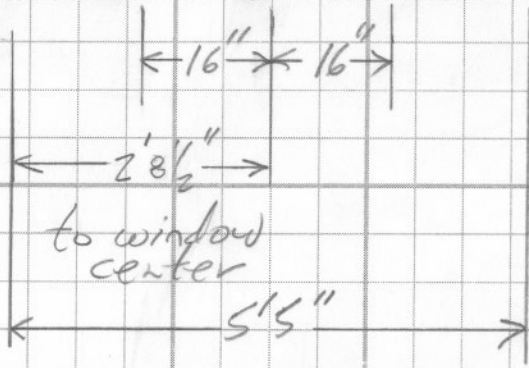 16" 16"
2'8½"
to window
center
5'5"